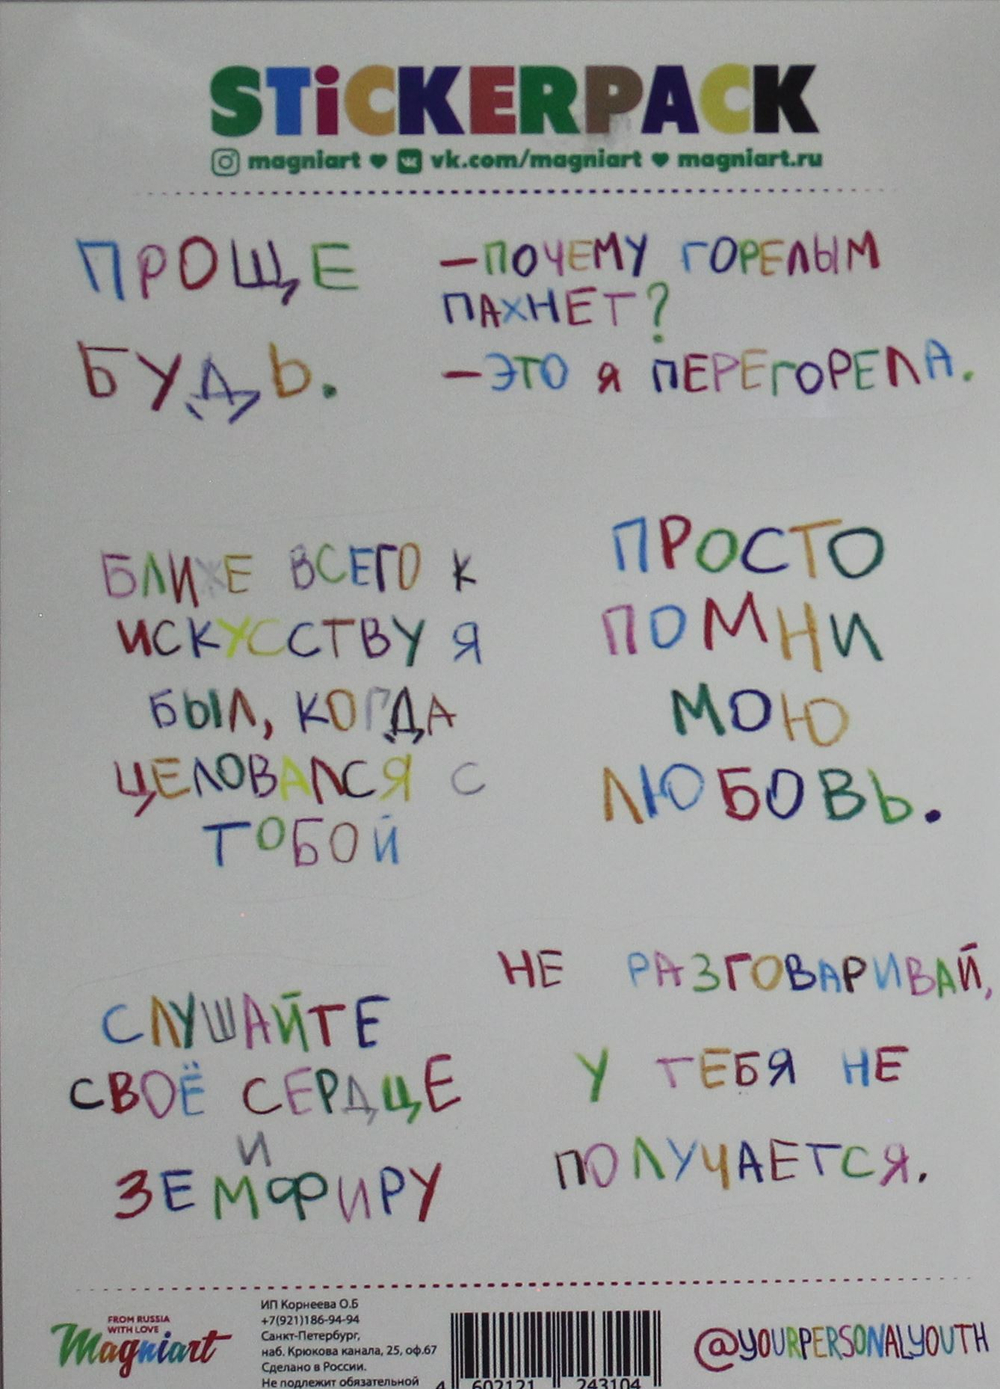 STiCKERPACK
magniart ♥ vk.com/magniart ♥ magniart.ru
ПРОЩЕ
БУДЬ.
—ПОЧЕМУ ГОРЕЛЫМ
ПАХНЕТ?
—ЭТО Я ПЕРЕГОРЕЛА.
БЛИЖЕ ВСЕГО К
ИСКУССТВУ Я
БЫЛ, КОГДА
ЦЕЛОВАЛСЯ С
ТОБОЙ
ПРОСТО
ПОМНИ
МОЮ
ЛЮБОВЬ.
СЛУШАЙТЕ
СВОЁ СЕРДЦЕ
И
ЗЕМФИРУ
НЕ РАЗГОВАРИВАЙ,
У ТЕБЯ НЕ
ПОЛУЧАЕТСЯ.
FROM RUSSIA
WITH LOVE
Magniart
ИП Корнеева О.Б
+7(921)186-94-94
Санкт-Петербург,
наб. Крюкова канала, 25, оф.67
Сделано в России.
Не подлежит обязательной
4 602121 243104
@YOURPERSONALYOUTH